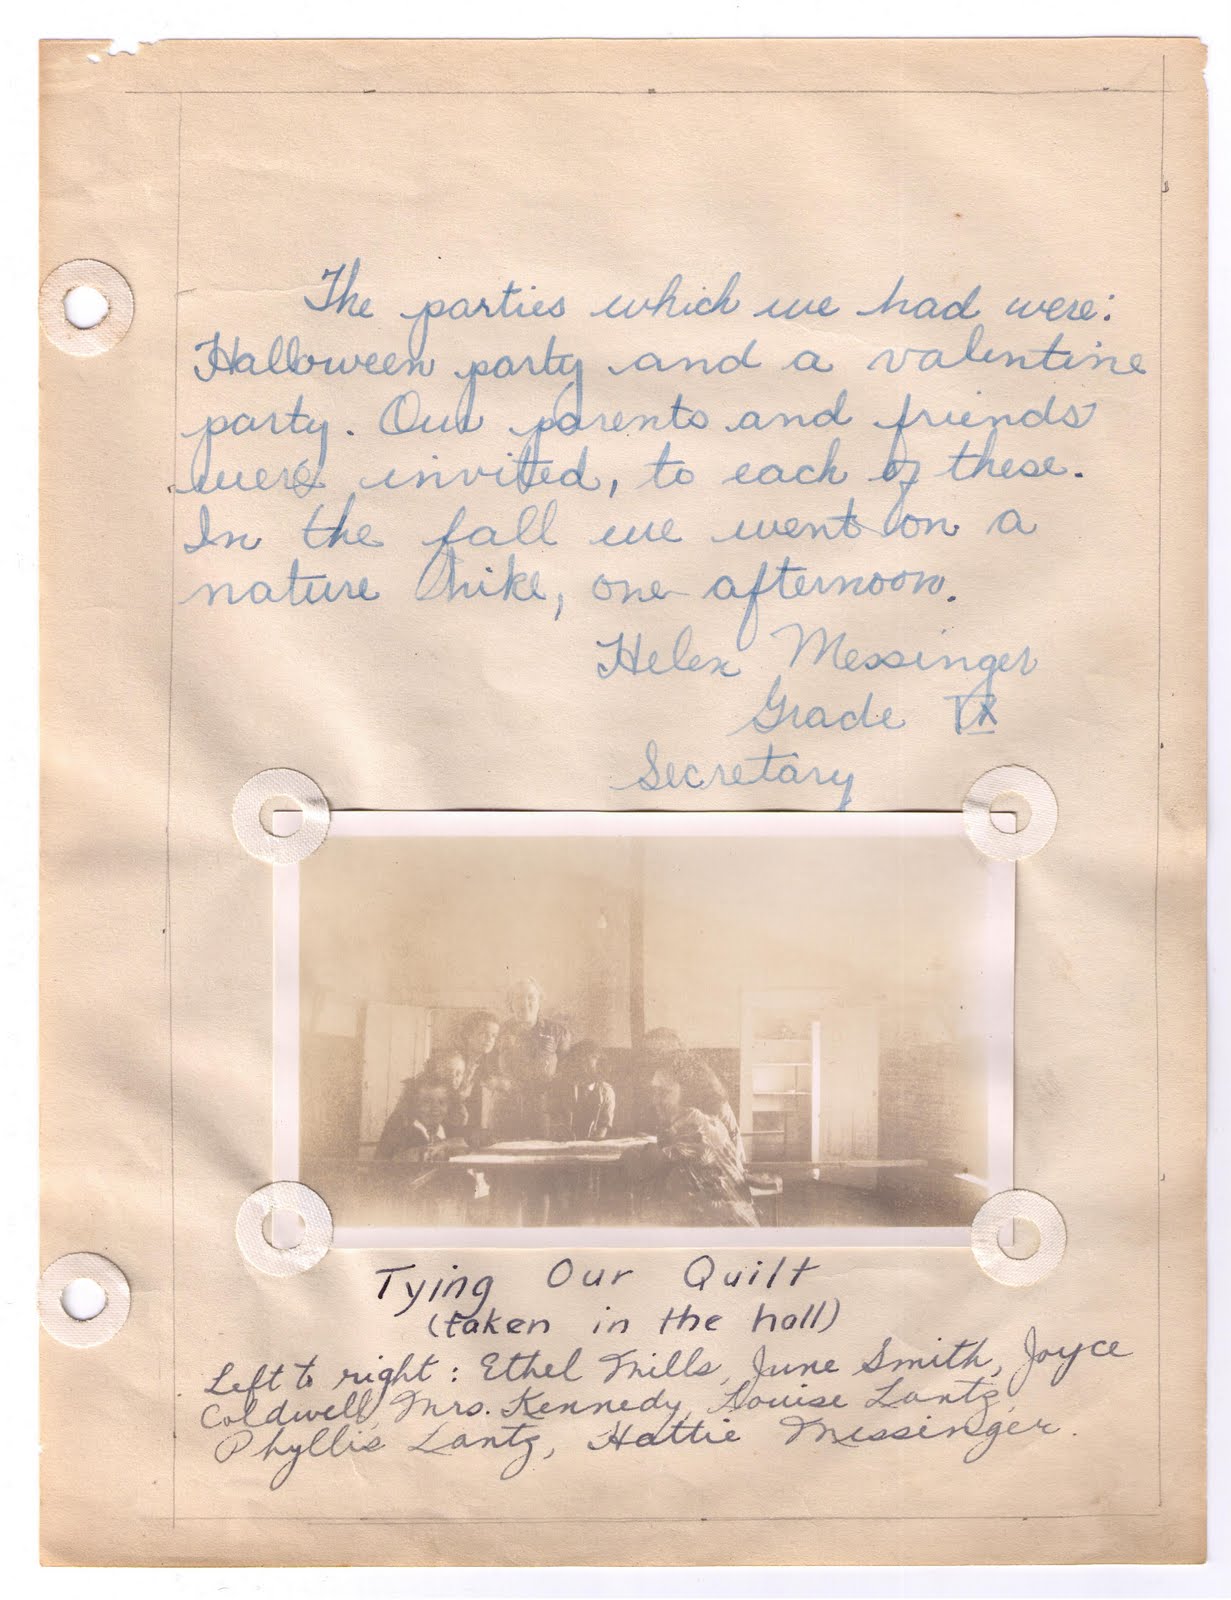 The parties which we had were:
Halloween party and a valentine
party. Our parents and friends
were invited, to each of these.
In the fall we went on a
nature hike, one afternoon.
Helen Messinger
Grade IX
Secretary
Tying Our Quilt
(taken in the hall)
Left to right: Ethel Mills, June Smith, Joyce
Coldwell, Mrs. Kennedy, Louise Lantz,
Phyllis Lantz, Hattie Messinger.